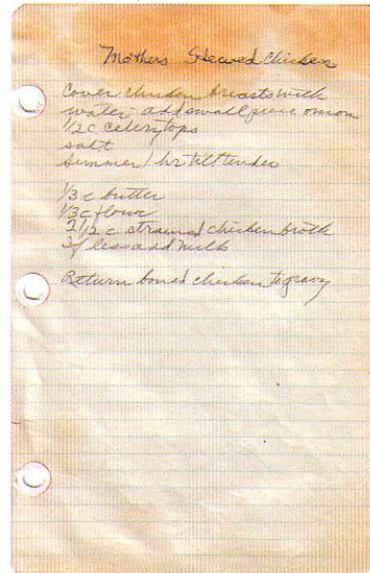 Mothers Stewed Chicken
Cover chicken breasts with
water add small piece onion
1/2 c celery tops
salt
Simmer 1 hr till tender
1/3 c butter
1/3 c flour
2 1/2 c strained chicken broth
If less add milk
Return boned chicken to gravy